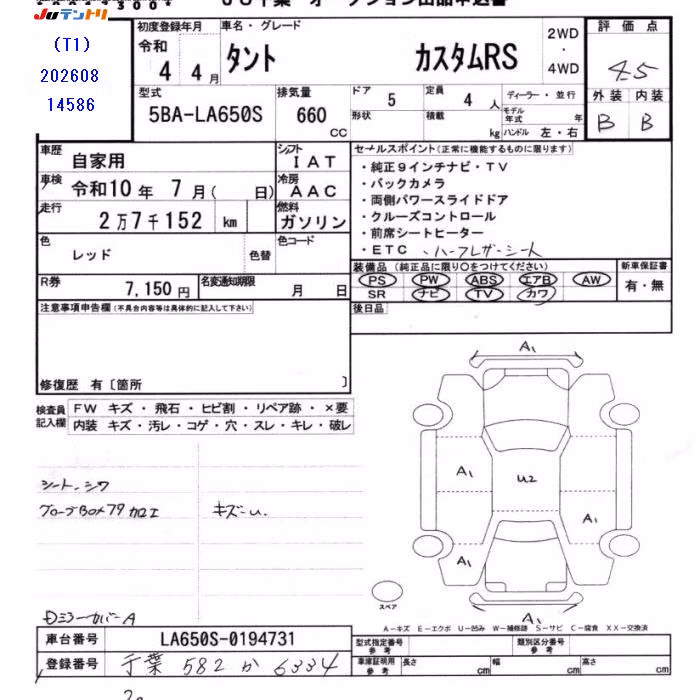 JUテントリ
JU千葉 オークション出品申込書
(T1)
202608
14586
初度登録年月
令和
4年 4月
車名・グレード
タント カスタムRS
2WD
・
4WD
評価点
4.5
外装 内装
B B
型式
5BA-LA650S
排気量
660
CC
ドア
5
定員
4 人
ディーラー・並行
形状
積載
kg
モデル
年式 年
ハンドル 左・右
車歴
自家用
シフト
IAT
車検
令和10年 7月( 日)
冷房
AAC
走行
2万7千152 km
燃料
ガソリン
色
レッド
色替
色コード
R券
7,150円
名変通知期限
月 日
セールスポイント(正常に機能するものに限ります)
・純正9インチナビ・TV
・バックカメラ
・両側パワースライドドア
・クルーズコントロール
・前席シートヒーター
・ETC 、ハーフレザーシート
装備品(純正品に限り○をつけてください)
PS PW ABS エアB AW
SR ナビ TV カワ
新車保証書
有・無
後日品
注意事項申告欄(不具合内容等は具体的に記入して下さい)
修復歴 有〔箇所 〕
検査員
記入欄
FW キズ・飛石・ヒビ割・リペア跡・×要
内装 キズ・汚レ・コゲ・穴・スレ・キレ・破レ
シート、シワ
グローブBOXフタ加工
キズ
ミラーカバーA
A1
A1
U2
A1
A1
A1
スペア
A-キズ E-エクボ U-凹み W-補修跡 S-サビ C-腐食 XX-交換済
車台番号
LA650S-0194731
登録番号
千葉 582 か 6334
型式指定番号
参考
類別区分番号
参考
車庫証明用
参考
長さ cm
幅 cm
高さ cm